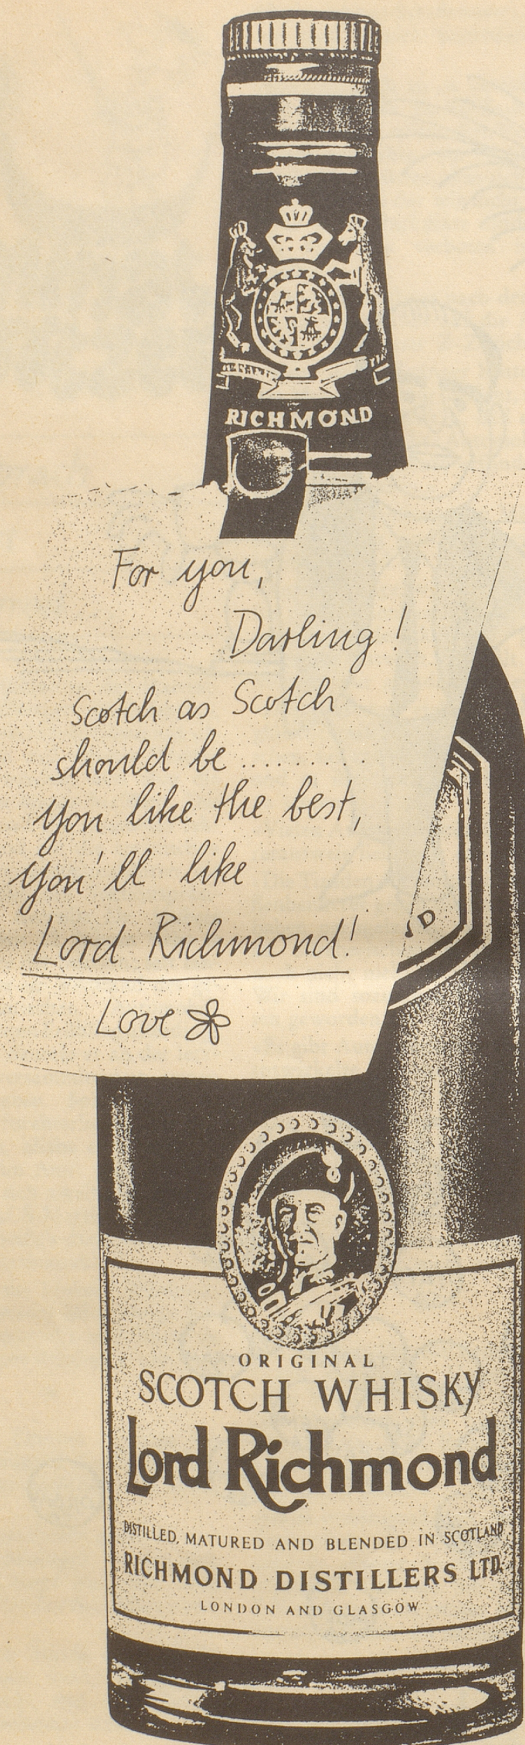 RICHMOND
For you,
Darling!
Scotch as Scotch
should be.........
you like the best,
you'll like
Lord Richmond!
Love
ORIGINAL
SCOTCH WHISKY
Lord Richmond
DISTILLED, MATURED AND BLENDED IN SCOTLAND
RICHMOND DISTILLERS LTD.
LONDON AND GLASGOW